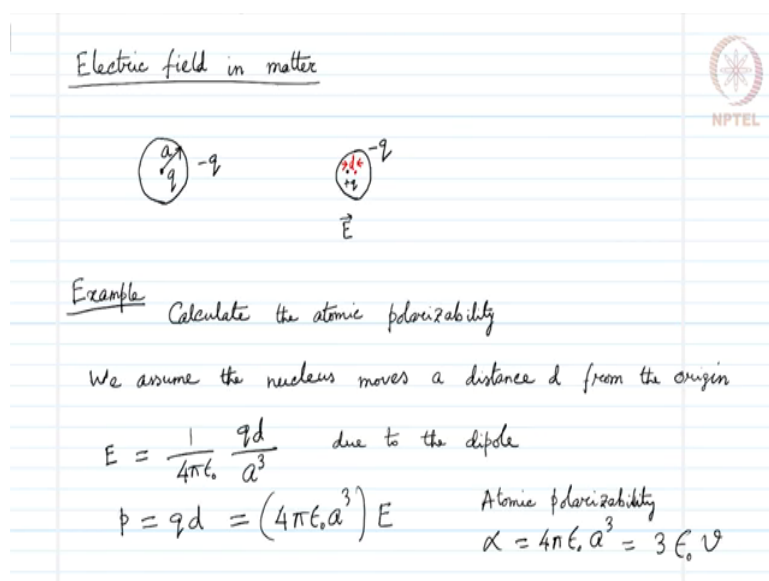 Electric field in matter
NPTEL
a q -q
d +q -q
E⃗
Example
Calculate the atomic polarizability
We assume the nucleus moves a distance d from the origin
E = 1/4πε₀ qd/a³ due to the dipole
p = qd = (4πε₀a³) E
Atomic polarizability
α = 4πε₀a³ = 3ε₀v